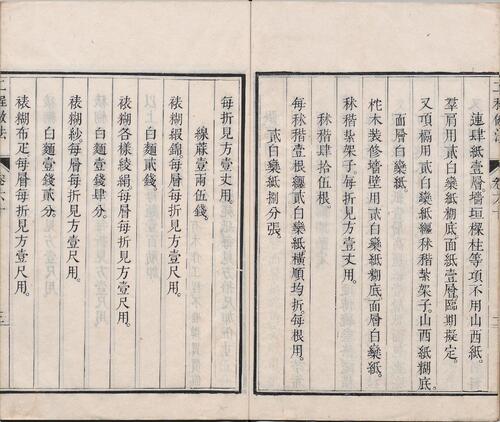 連肆紙壹層墻垣樑柱等項不用山西紙。
羣肩用貳白欒紙糊底面紙壹層臨期擬定。
又頂槅用貳白欒紙纏秫稭紥架子。山西紙糊底。
面層白欒紙。
柁木装修墻壁用貳白欒紙糊底。面層白欒紙。
秫稭紥架子。每折見方壹丈用。
秫稭肆拾伍根。
每秫稭壹根纏貳白欒紙橫順均折。每根用。
貳白欒紙捌分張。
每折見方壹丈用。
線蔴壹兩伍錢。
裱糊緞錦每層每折見方壹尺用。
白麵貳錢。
裱糊各樣綾絹每層每折見方壹尺用。
白麵壹錢肆分。
裱糊紗每層每折見方壹尺用。
白麵壹錢貳分。
裱糊布疋每層每折見方壹尺用。
工程做法
卷六十
三